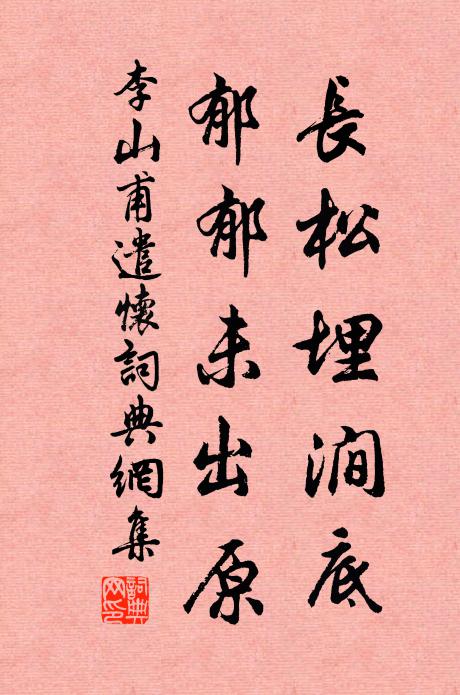 長松埋澗底
郁郁未出原
李山甫遣懷詞典網集
詞典
网印